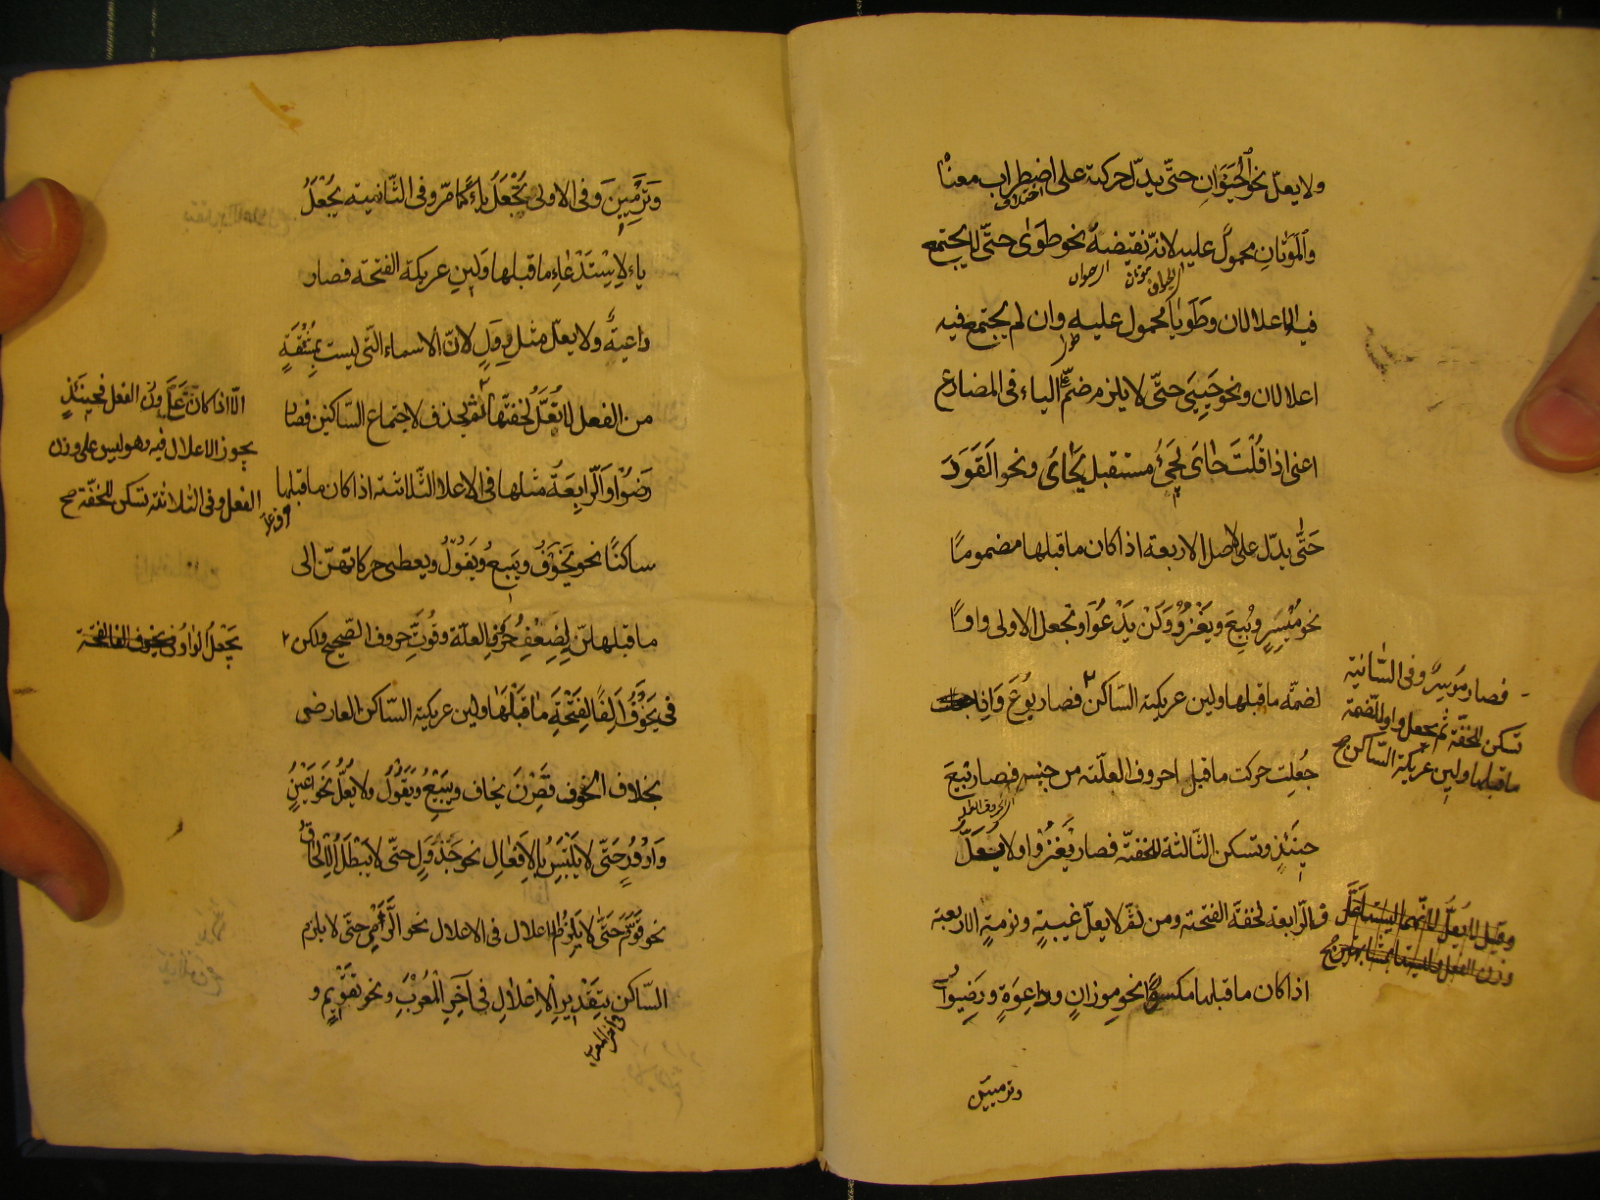 ولا يعلّ نحو الحَيَوَانِ حتّى يدلّ حركته على اضطراب معناه
والمَوَتانِ محمولٌ عليه لانه نقيضه نحو طَوٰى حتّى لا يجتمع
فيه الاعلالان وطَوَيا محمول عليه وان لم يجتمع فيه
اعلالان ونحو حَيِىَ حتّى لا يلزم ضمّ الياء فى المضارع
اعنى اذا قُلْتَ حاىَ يجئ مستقبل يَحاىُ ونحو القَوَدَ
حتّى يدلّ على الاصل الاربعة اذا كان ما قبلها مضموما
نحو مُيْسِرٍ وبُيِعَ ويَغْزُوُ ولَنْ يَدْعُوَ تجعل الاولى واوًا
لضمّة ما قبلها ولين عريكة الساكن فصار بُوعَ واذا
جُعِلت حركت ما قبل احروف العلّة من جنس فصار بِيعَ
حينئذٍ وتسكن الثّالثة للخفّة فصار يَغْزُوا ولا يعلّ
فى الرّابعة لخفّة الفتحة ومن ثمّ لا يعلّ غيبةٍ ونومةٍ الاربعة
اذا كان ما قبلها مكسورًا نحو موزانٍ وداعِوَةٍ ورَضِيوا
وترميين
فصار موسر وفى الثانية
تسكن للخفّة ثم يجعل واوا لضمة
ما قبلها ولين عريكة الساكن صح
وقيل لا يعلّ
وَتَرْمِيِينَ وفى الاولى تُجْعَلُ ياءً كما مرّ وفى الثّانية يُجْعَلُ
ياء لاستدعاء ما قبلها ولين عريكة الفتحة فصار
داعيةً ولا يعلّ مثل دِوَلٍ لانّ الاسماء التى ليست بمشتقّةٍ
من الفعل لا تُعَلّ لخفّتها ثم تحذف لاجتماع السّاكنين فصار
رَضُوا والرّابعة مثلها فى الاعلال الثّلاثة اذا كان ما قبلها
ساكنًا نحو يَخْوَفُ ويَبْيِعُ ويَقْوُلُ ويعطى حركاتهنّ الى
ما قبلهنّ لِضِعْفِ حرف العلّة وقوّت حروف الصّحيح ولكن
فى يَخْوَفُ اَلِفًا لِفَتْحَةِ ما قبلها ولين عريكة السّاكن العارضى
بخلاف الخوف فَصِرْنَ يخاف ويبيع ويقول ولا يُعَلُّ نحو اَعْيُنٍ
وَاَدْوُرٍ حَتّى لا يَلْتَبِسَ بالافعال نحو جَدْوَلٍ حتّى لا يَبْطُلَ الالحاق
نحو قَوَّمَ حَتّى لا يلزم الاعلال فى الاعلال نحو الرَّمْىِ حتّى لا يلزم
السّاكن بِتَقْدِيرِ الْاِعْلالِ فى آخِرِ الْمُعْرَبِ ونحو تَقْوِيمٍ و
الّا اذا كانت على وزن الفعل فحينئذٍ
يجوز الاعلال فيه وهو ليس على وزن
الفعل وفى الثلاثة تسكن للخفّة صح
يجعل الواو فى
فى آخر المعرب